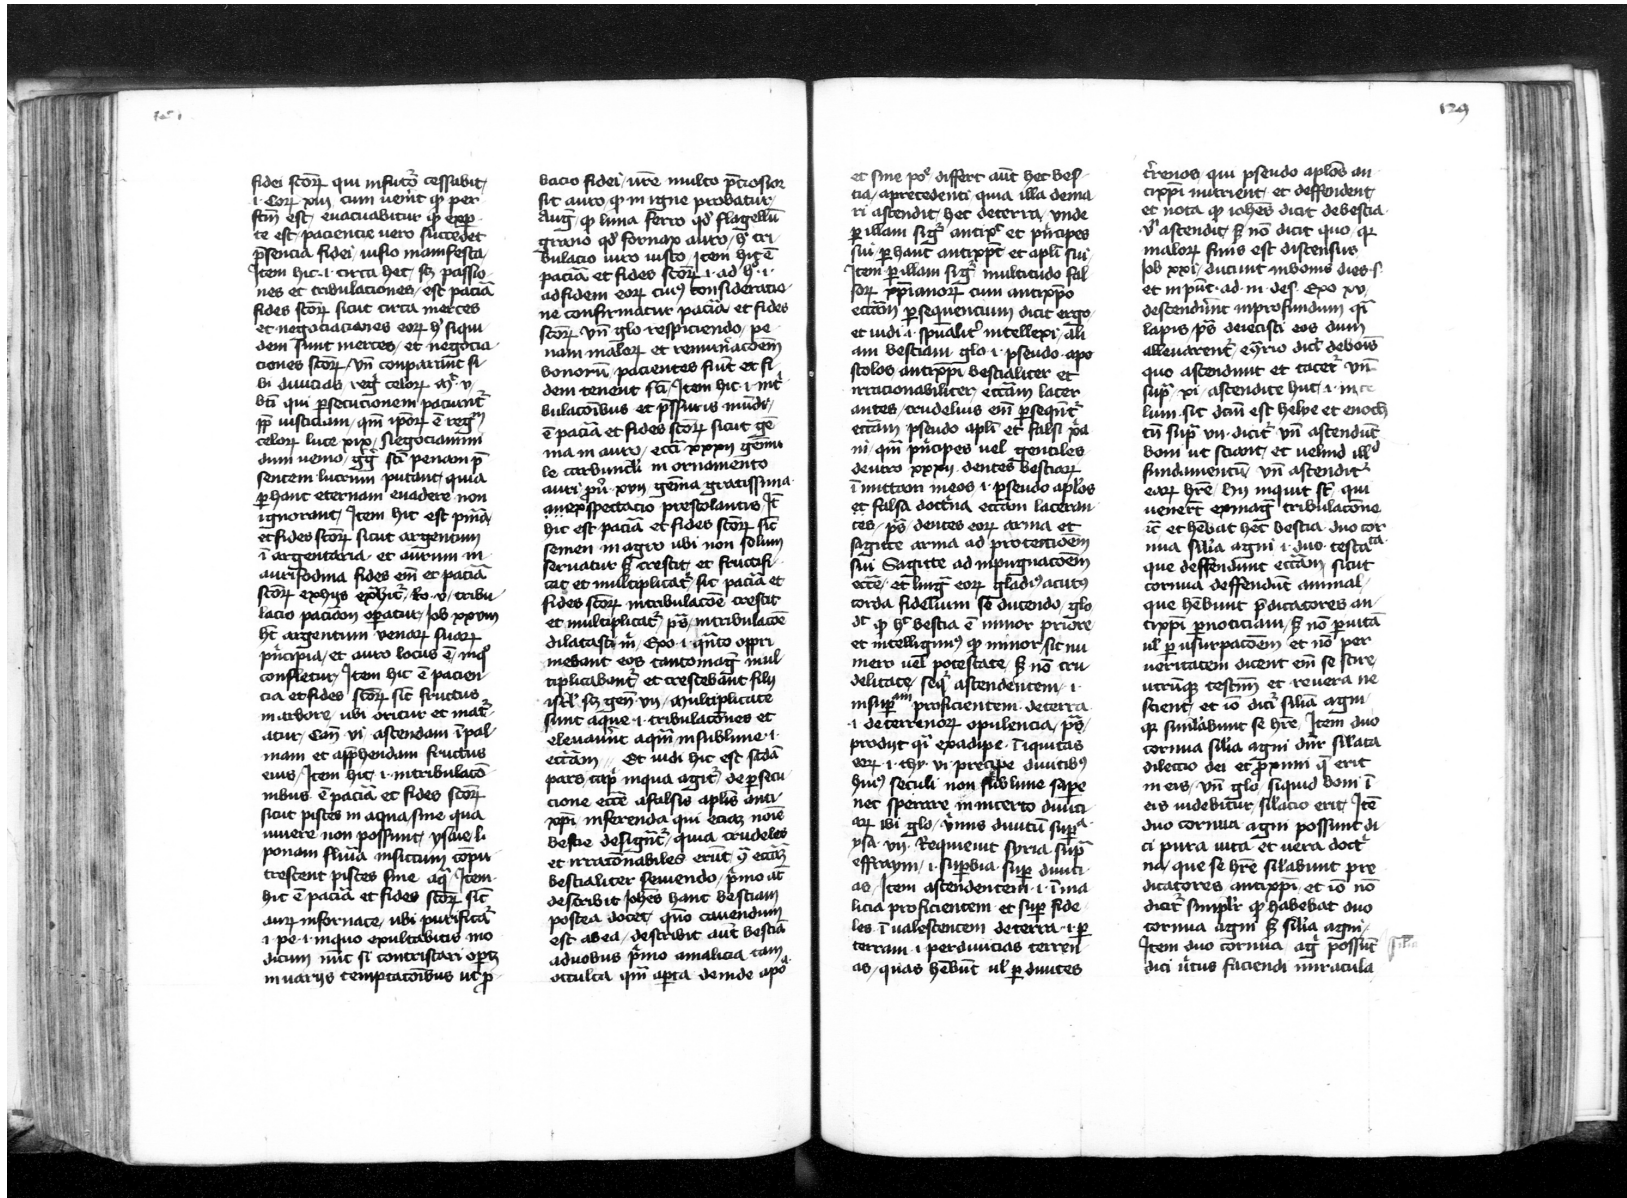 129
fidei scoꝝ qui in futo cessabit
.i. Coꝝ xiii cum uenit qp per
fcm est euacuabitur qp ex per
te est paciencie uero succedet
psencia fidei uisio manifesta
Item hic .i. circa hec sz passio
nes et tribulaciones est paciā
fides scoꝝ sicut circa merces
et negociaciones eoꝝ siqui
dem sunt merces et negocia
ciones scoꝝ vn̄ conparant si
bi diuicias reg celoꝝ mt v
bti qui psecutionem paciunt
pp iusticiam qm ipoꝝ ē regm
celoꝝ luce xix Negociamini
dum uenio gg sci penam p
sentem lucrum putant quia
p hanc eternam euadere non
ignorant Item hic est pacia
et fides scoꝝ sicut argentum
ī argentaria et aurum in
aurifodina fides em et paciā
scoꝝ ex hijs Ro v tribu
lacio paciam opatur Job xxviii
ht argentum venaꝝ suaꝝ
pncipia et auro locus ē in quo
confletur Item hic ē pacien
cia et fides scoꝝ sic fructus
in arbore ubi oritur et mat
atur Can vi ascendam ī pal
mam et apphendam fructus
eius Item hic .i. in tribulacō
nibus ē paciā et fides scoꝝ
sicut pisces in aqua sine qua
uiuere non possunt ysaie l
ponam fluuia in siccum compu
trescent pisces sine aq Item
hic ē paciā et fides scoꝝ sic
auꝝ in fornace ubi purificat
i pe i in quo exultabitis mo
dicum nūc si contristari opꝫ
in uarijs temptacōibus ut p
bacio fidei ure multo pciosior
sit auro qp in igne probatur
Aug qp lima ferro qd flagellū
grano qd fornax auro h tri
bulacio uiro iusto Item hic ē
paciā et fides scoꝝ .i. ad h .i.
ad fidem eoꝝ cuiꝰ consideracio
ne confirmatur paciā et fides
scoꝝ vn̄ glo respiciendo pe
nam maloꝝ et remunacōem
bonoꝝ pacientes fiut et fi
dem tenent sci Item hic .i. int
bulacōibus et pssuris mūdi
ē paciā et fides scoꝝ sicut gē
ma in auro ecci xxxii gēmu
le carbuncli in ornamento
auri pu xvii gēma gratissima
exspectacio prestolantis It
hic est paciā et fides scoꝝ sic
semen in agro ubi non solum
seruatur sꝫ crescit et fructifi
cat et multiplicat sic paciā et
fides scoꝝ in tribulacōe crescit
et multiplicat ps in tribulacōe
dilatasti m Exo i qnto oppri
mebant eos tantomag mul
tiplicabant et crescebant filij
isrl sz gen vii Multiplicate
sunt aque .i. tribulacōnes et
eleuauerūt aqm in sublime .i.
eccām Et uidi hic est scda
pars capi in qua agit de psecu
cione eccē a falsis aplis anti
xpi inferenda qui eciā noīe
bestie designt quia crudeles
et irracōnabiles erūt eccām
bestialiter seuiendo pmo at
describit Johes hanc bestiam
postea docet quō cauendum
est ab ea describit aut bestiā
a duobus pmo a malicia tam
occulta qm apta deinde a po
et sine po differt aut hec bes
tia a precedenti quia illa de ma
ri ascendit hec de terra unde
p illam sig antixꝰ et principes
sui p hanc antixp̄t et apli sui
Item p illam sig multitudo fal
soꝝ xpianoꝝ cum antixpo
eccām psequencium dicit ergo
et uidi .i. spualit intellexi ali
am bestiam glo .i. pseudo apo
stolos antixpi bestialiter et
irracionabiliter eccām lacer
antes crudelius em pseqnt
eccām pseudo apli et falsi xpia
ni qm pncipes uel gentiles
deutro xxxii dentes bestiaꝝ
īmittam in eos .i. pseudo aplos
et falsa doctna eccām laceran
tes ps dentes eoꝝ arma et
sagitte arma ad protectiōem
sui Sagitte ad inpugnacōem
eccē et ling eoꝝ gladiꝰ acutus
corda fidelium seducendo glo
dt qp h bestia ē minor priore
et intelligimꝰ qp minor sit nu
mero uel potestate sꝫ nō cru
delitate seq ascendentem .i.
insup proficientem de terra
.i. de terrenoꝝ opulencia ps
prodijt q ex adipe ī iquitas
eoꝝ .i. thy vi precipe diuitibꝰ
huiꝰ seculi non sublime sape
nec sperare in incerto diuici
aꝝ ibi glo unus diuitū supbia
ysa vii Requieuit syria sup
effraym .i. supbia sup diuici
as Item ascendentem .i. ī ma
licia proficientem et sup fide
les ī ualescentem de terra .i. p
terram .i. per diuicias terren
as quas hēbūt ul p diuites
trenos qui pseudo aplos an
tixpi nutrient et deffendent
et nota qp iohes dicit de bestia
ascendit sꝫ nō dicit quo qr
maloꝝ finis est discensus
Job xxi ducunt in bonis dies s
et in pūc ad in des Exo xv
descenderūt in profundum q
lapis ps deiecisti eos dum
alleuarent e9rio dict de bōis
quo ascendunt et tacet vn̄
sup xi ascendite huc .i. in ce
lum sic dcm est helye et enoch
cū sup vii dicit vn̄ ascendūt
boni ut sciant et uelud ill
fundamentū vn̄ ascendit
eoꝝ hre hij inquit st qui
venert ex mag tribulacōne
ic et hēbat hec bestia duo cor
nua silia agni .i. duo testa ta
que deffendunt eccām sicut
cornua deffendunt animal
que hēbunt pdicatores an
tixpi p noticiam sꝫ nō p uitā
ul p usurpacōem et nō per
ueritatem dicent em se scire
utrūqꝫ testm et reuera ne
scient et iō dic silia agni
qr simlabunt se hre Item duo
cornua silia agni dnr silata
dilectio dei et proximi q erit
in eis vn̄ glo siquid boni ī
eis uidebitur silacio erit Itē
duo cornua agni possunt di
ci pura uita et uera doct
na que se hre silabunt pre
dicatores antixpi et iō nō
dicit simplr qp habebat duo
cornua agni sꝫ silia agni
Item duo cornua ag possūt
dici utus faciendi miracula